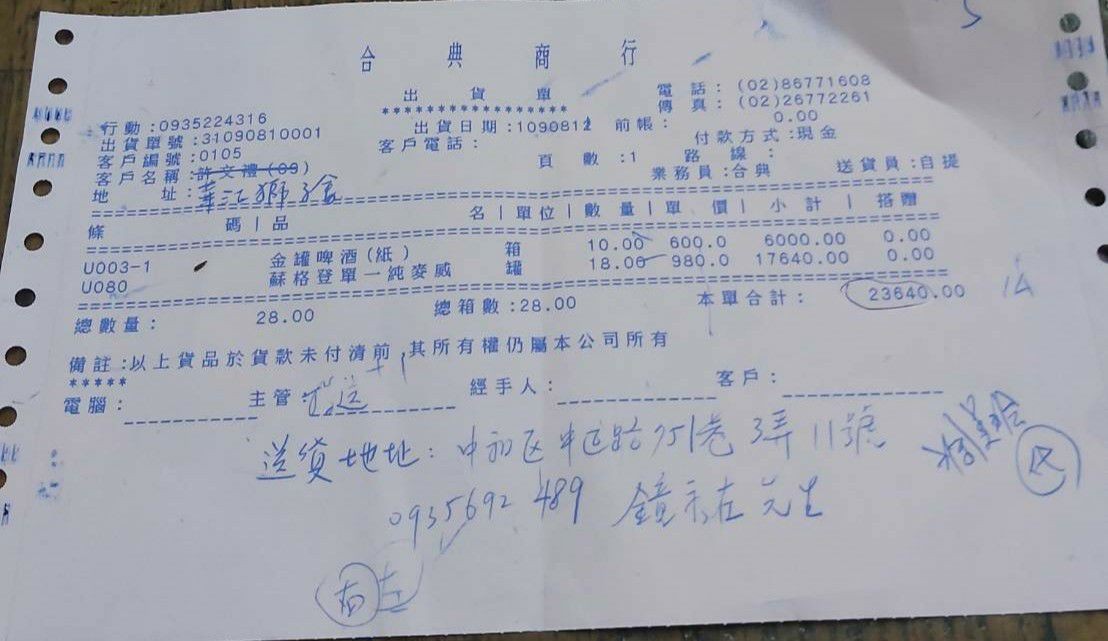 合典商行
出貨單
******************
電話：(02)86771608
傳真：(02)26772261
行動:0935224316
出貨單號:31090810001
出貨日期:1090812 前帳： 0.00
客戶編號:0105
客戶電話：
付款方式:現金
客戶名稱:許文禮(09)
頁數:1 路線：
地址:華江獅子會
業務員:合典 送貨員:自提
條碼|品名|單位|數量|單價|小計|搭贈
U003-1 金罐啤酒(紙) 箱 10.00 600.0 6000.00 0.00
U080 蘇格登單一純麥威 罐 18.00 980.0 17640.00 0.00
總數量： 28.00 總箱數:28.00 本單合計： 23640.00
備註:以上貨品於貨款未付清前,其所有權仍屬本公司所有
*****
電腦： 主管 經手人： 客戶：
送貨地址：中和区中正路751巷3弄11號
0935692489 先生
代
右 左